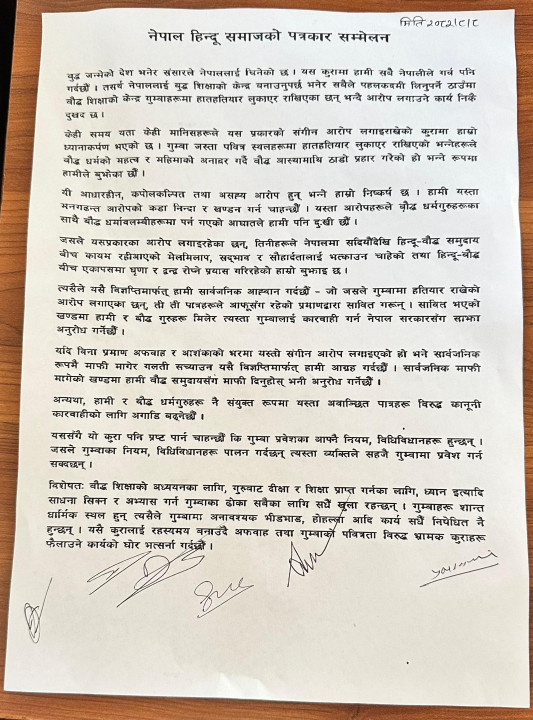 मिति २०८२।८।८
नेपाल हिन्दू समाजको पत्रकार सम्मेलन
बुद्ध जन्मेको देश भनेर संसारले नेपाललाई चिनेको छ । यस कुरामा हामी सबै नेपालीले गर्व पनि
गर्दछौं । तसर्थ नेपाललाई बुद्ध शिक्षाको केन्द्र बनाउनुपर्छ भनेर सबैले पहलकदमी लिनुपर्ने ठाउँमा
बौद्ध शिक्षाको केन्द्र गुम्बाहरूमा हातहतियार लुकाएर राखिएका छन् भन्दै आरोप लगाउने कार्य निकै
दुखद छ ।
केही समय यता केही मानिसहरूले यस प्रकारको संगीन आरोप लगाइराखेको कुरामा हाम्रो
ध्यानाकर्षण भएको छ । गुम्बा जस्ता पवित्र स्थलहरूमा हातहतियार लुकाएर राखिएको भन्नेहरूले
बौद्ध धर्मको महत्व र महिमाको अनादर गर्दै बौद्ध आस्थामाथि ठाडो प्रहार गरेको हो भन्ने रूपमा
हामीले बुझेका छौं ।
यी आधारहीन, कपोलकल्पित तथा असह्य आरोप हुन् भन्ने हाम्रो निष्कर्ष छ । हामी यस्ता
मनगढन्त आरोपको कडा निन्दा र खण्डन गर्न चाहन्छौं । यस्ता आरोपहरूले बौद्ध धर्मगुरुहरूका
साथै बौद्ध धर्मावलम्बीहरूमा पर्न गएको आघातले हामी पनि दुःखी छौं ।
जसले यसप्रकारका आरोप लगाइरहेका छन्, तिनीहरूले नेपालमा सदियौंदेखि हिन्दू-बौद्ध समुदाय
बीच कायम रहीआएको मेलमिलाप, सद्भाव र सौहार्दतालाई भत्काउन चाहेको तथा हिन्दू-बौद्ध
बीच एकापसमा घृणा र द्वन्द्व रोप्ने प्रयास गरिरहेको हाम्रो बुझाइ छ ।
त्यसैले यसै विज्ञप्तिमार्फत् हामी सार्वजनिक आह्वान गर्दछौं - जो जसले गुम्बामा हतियार राखेको
आरोप लगाएका छन्, ती ती पात्रहरूले आफूसँग रहेको प्रमाणद्वारा साबित गरून् । साबित भएको
खण्डमा हामी र बौद्ध गुरुहरू मिलेर त्यस्ता गुम्बालाई कारवाही गर्न नेपाल सरकारसंग साझा
अनुरोध गर्नेछौं ।
यदि बिना प्रमाण अफवाह र आशंकाको भरमा यस्तो संगीन आरोप लगाइएको हो भने सार्वजनिक
रूपमै माफी मागेर गलती सच्याउन यसै विज्ञप्तिमार्फत् हामी आग्रह गर्दछौं । सार्वजनिक माफी
मागेको खण्डमा हामी बौद्ध समुदायसंग माफी दिनुहोस् भनी अनुरोध गर्नेछौं ।
अन्यथा, हामी र बौद्ध धर्मगुरुहरू नै संयुक्त रूपमा यस्ता अवाञ्छित पात्रहरू विरुद्ध कानूनी
कारवाहीको लागि अगाडि बढ्नेछौं ।
यससंगै यो कुरा पनि प्रष्ट पार्न चाहन्छौं कि गुम्बा प्रवेशका आफ्नै नियम, विधिविधानहरू हुन्छन् ।
जसले गुम्बाका नियम, विधिविधानहरू पालन गर्दछन् त्यस्ता व्यक्तिले सहजै गुम्बामा प्रवेश गर्न
सक्दछन् ।
विशेषतः बौद्ध शिक्षाको अध्ययनका लागि, गुरुबाट दीक्षा र शिक्षा प्राप्त गर्नका लागि, ध्यान इत्यादि
साधना सिक्न र अभ्यास गर्न गुम्बाका ढोका सबैका लागि सधैं खुला रहन्छन् । गुम्बाहरू शान्त
धार्मिक स्थल हुन् त्यसैले गुम्बामा अनावश्यक भीडभाड, होहल्ला आदि कार्य सधैं निषेधित नै
हुन्छन् । यसै कुरालाई रहस्यमय बनाउँदै अफवाह तथा गुम्बाको पवित्रता विरुद्ध भ्रामक कुराहरू
फैलाउने कार्यको घोर भर्त्सना गर्दछौं ।